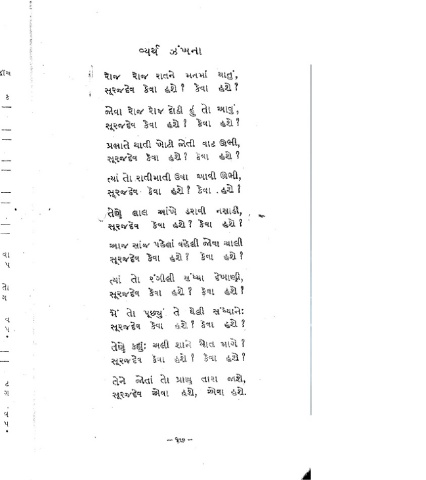 વ્યર્થ ઝંખના
રોજ રોજ રાતને મનમાં થાતું,
સૂરજદેવ કેવા હશે? કેવા હશે?
જોવા રોજ રોજ દોડી હું તો આવું,
સૂરજદેવ કેવા હશે? કેવા હશે?
પ્રભાતે થાતી ખોટી જોતી વાટ ઊભી,
સૂરજદેવ કેવા હશે? કેવા હશે?
ત્યાં તો રાતીમાતી ઉષા આવી ઊભી,
સૂરજદેવ કેવા હશે? કેવા હશે?
તેણે લાલ આંખે ડરાવી નસાડી,
સૂરજદેવ કેવા હશે? કેવા હશે?
આજ સાંજ પહેલાં વહેલી જોવા ચાલી
સૂરજદેવ કેવા હશે? કેવા હશે?
ત્યાં તો રંગીલી સંધ્યા દેખાણી,
સૂરજદેવ કેવા હશે? કેવા હશે?
મેં તો પૂછ્યું તે ઘેલી સંધ્યાને:
સૂરજદેવ કેવા હશે? કેવા હશે?
તેણે કહ્યું: અલી શાને મોત માગે?
સૂરજદેવ કેવા હશે? કેવા હશે?
તેને જોતાં તો પ્રાણ તારા જાશે,
સૂરજદેવ એવા હશે, એવા હશે.